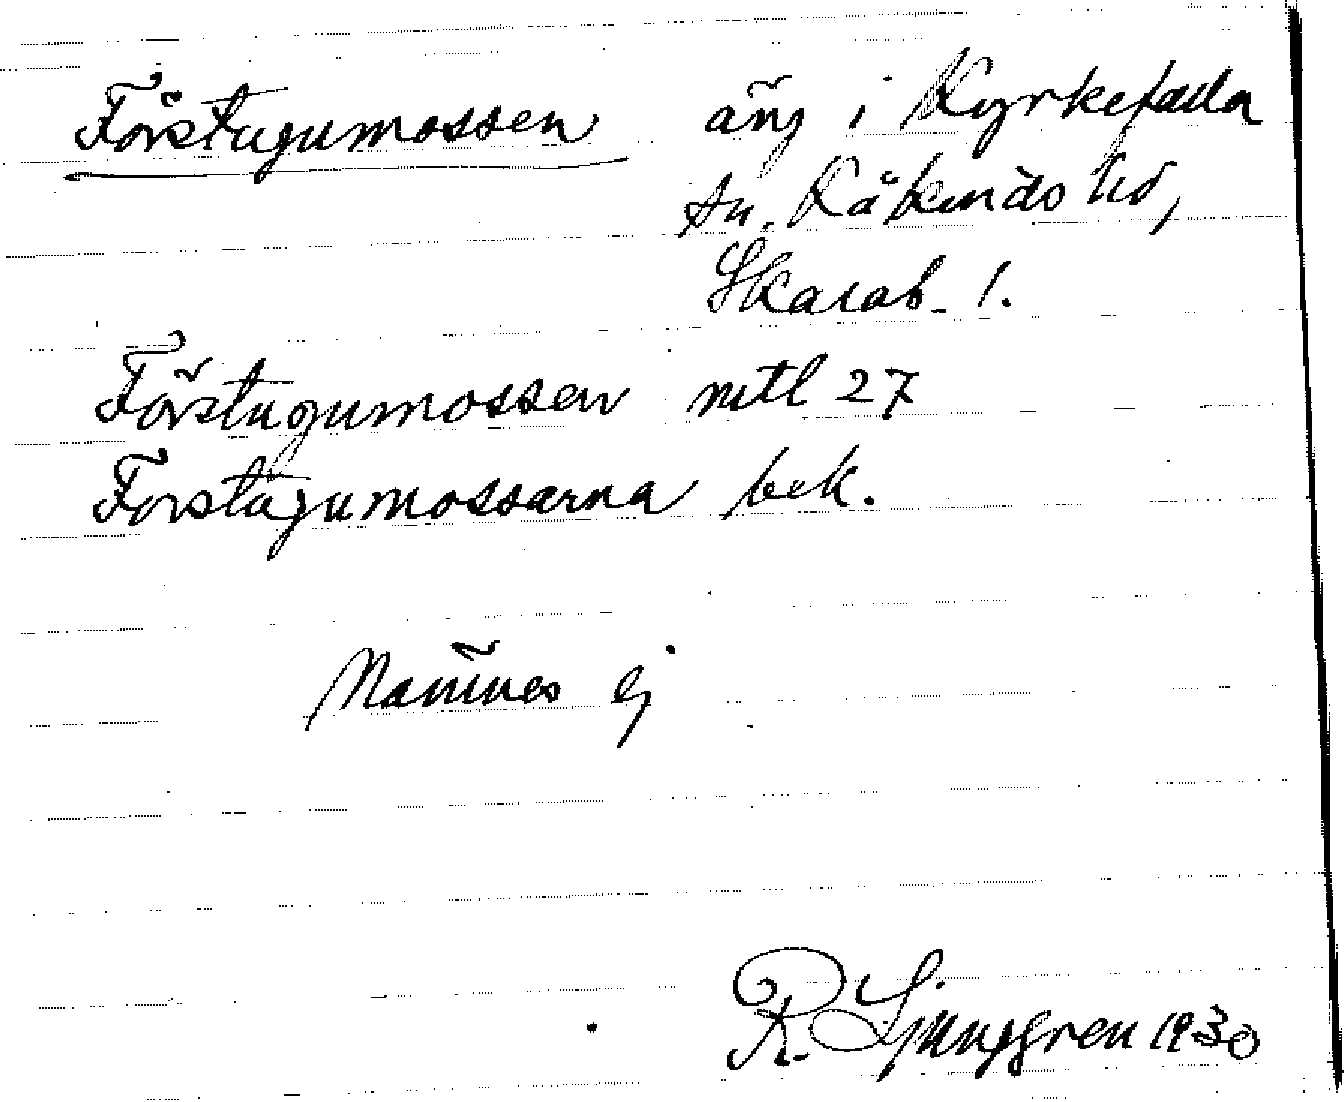 Förstugumossen äng i Kyrkefalla
sn. Kåkinds hd,
Skarab. l.
Förstugumossen mtl 27
Forstugumossarna bek.
Nämnes ej
R. Ljunggren 1930